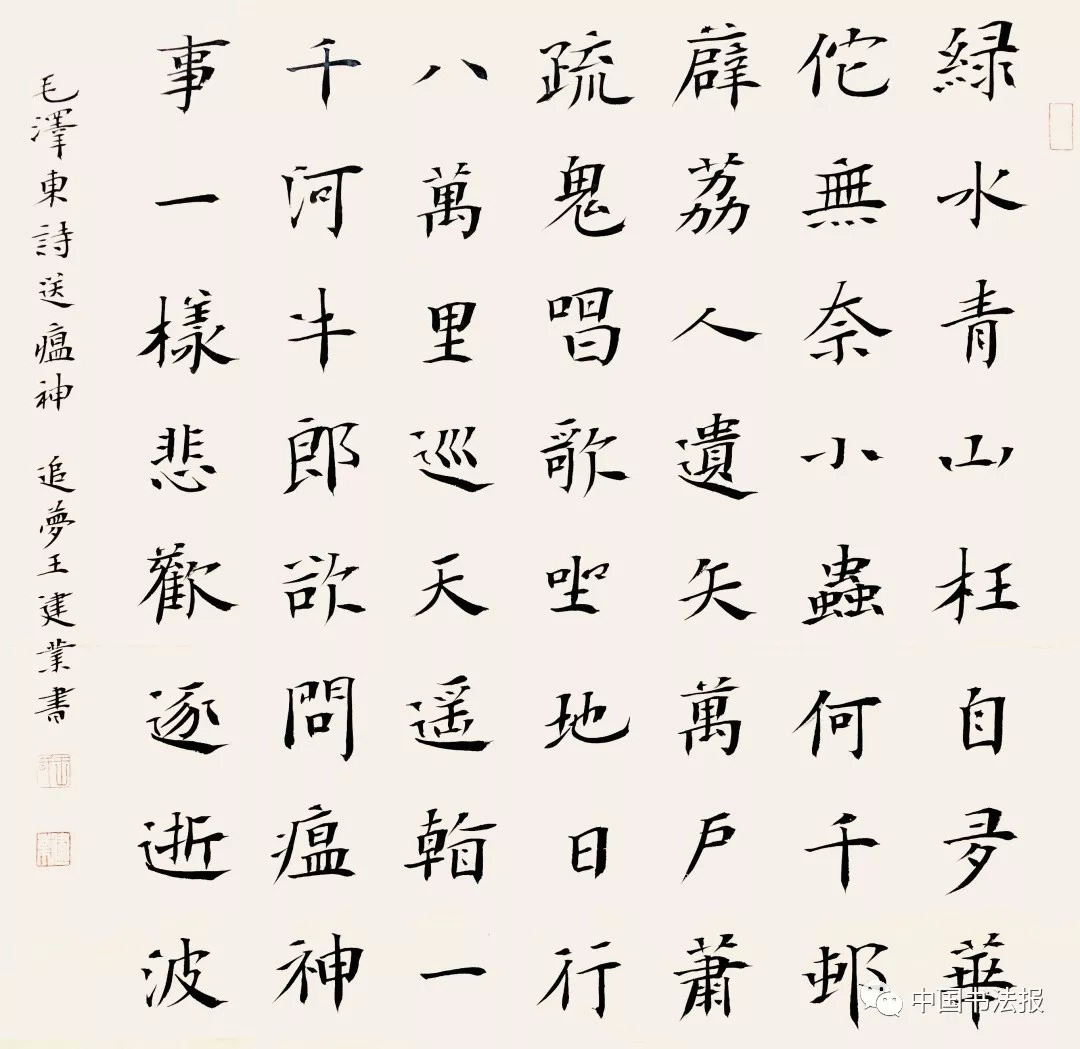 緑水青山枉自夛華
佗無奈小蟲何千邨
薜荔人遺矢萬戶蕭
疏鬼唱歌坐地日行
八萬里巡天遥看一
千河牛郎欲問瘟神
事一樣悲歡逐逝波
毛澤東詩送瘟神 追夢王建業書
中国书法报